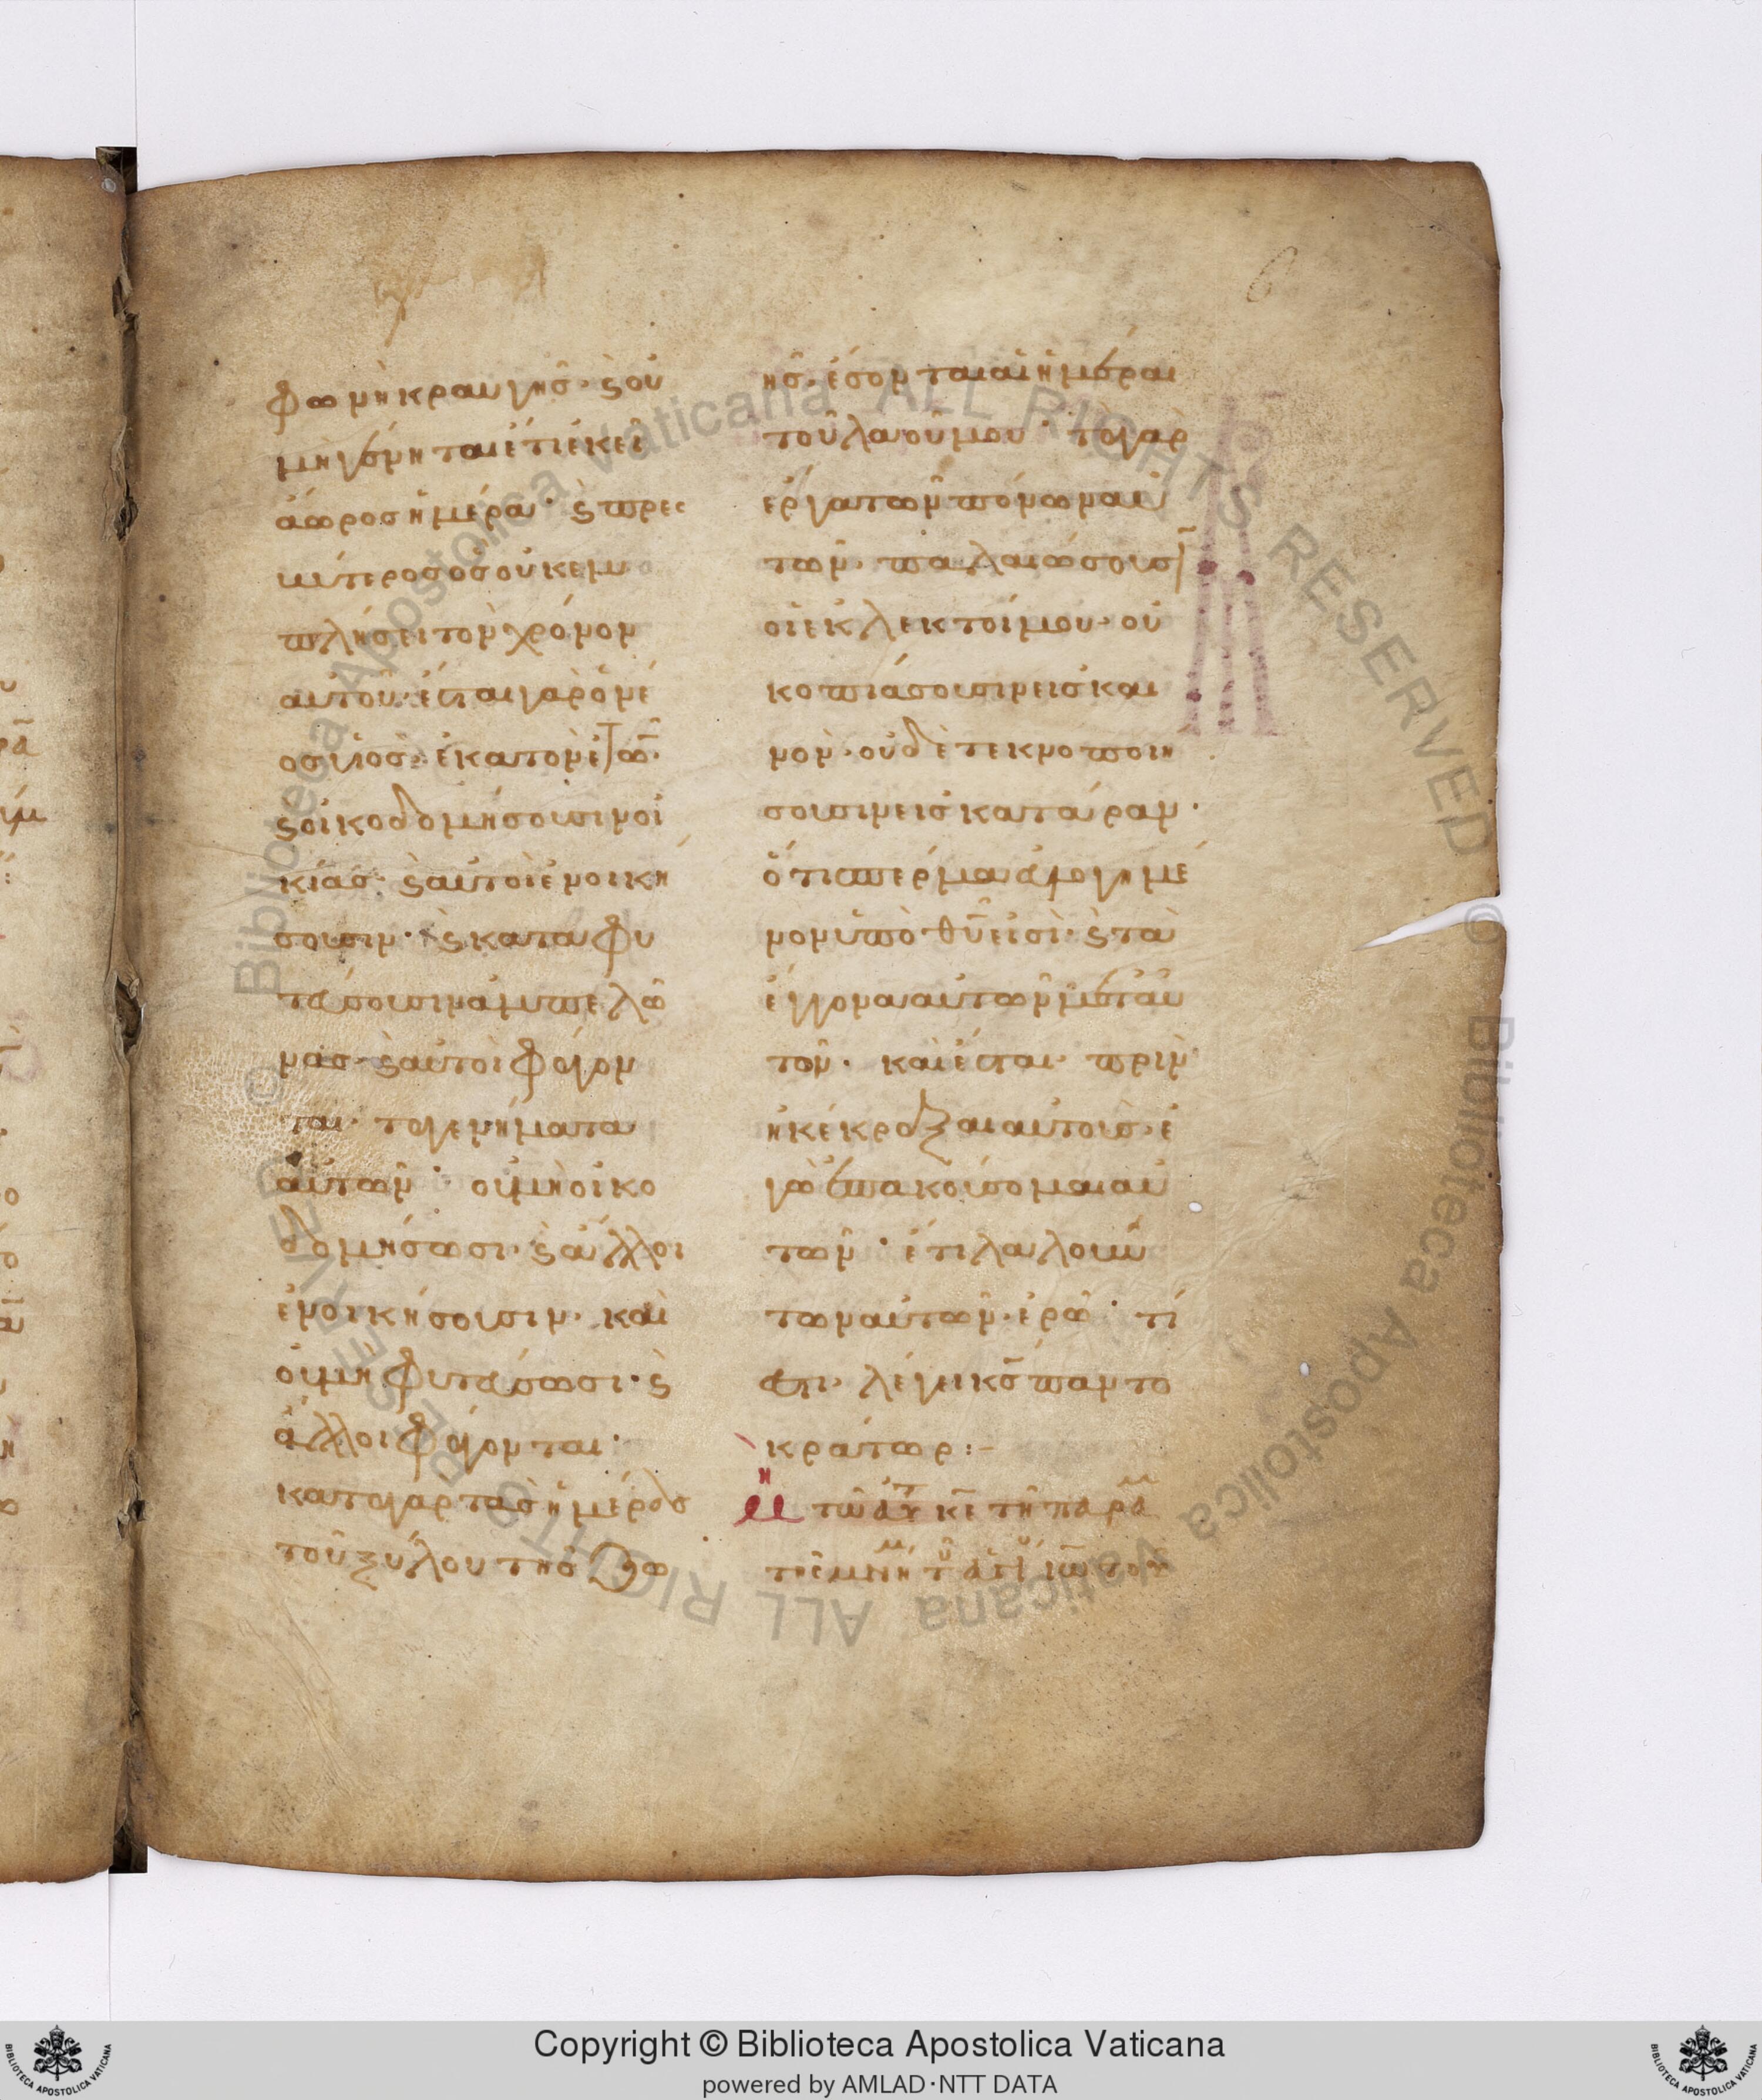 φωνὴ κραυγῆς· ϗ οὐ
μὴ γένηται ἔτι ἐκεῖ
ἄωρος ἡμέρα· ϗ πρεσ
βύτερος ὃς οὐκ ἐμ
πλήσει τὸν χρόνον
αὐτοῦ· ἔσται γὰρ ὁ νέ
ος υἱὸς ἑκατὸν ἐτῶν·
ϗ οἰκοδομήσουσιν οἰ
κίας· ϗ αὐτοὶ ἐνοικη
σουσιν· ϗ καταφυ
τεύσουσιν ἀμπελῶ
νας· ϗ αὐτοὶ φάγον
ται τὰ γενήματα
αὐτῶν· οὐ μὴ οἰκο
δομήσωσι· ϗ ἄλλοι
ἐνοικήσουσιν· καὶ
οὐ μὴ φυτεύσωσι· ϗ
ἄλλοι φάγονται·
κατὰ γὰρ τὰς ἡμέρας
τοῦ ξύλου τῆς ζω
ῆς· ἔσονται αἱ ἡμέραι
τοῦ λαοῦ μου· τὰ γὰρ
ἔργα τῶν πόνων αὐ
τῶν· παλαιώσουσι
οἱ ἐκλεκτοί μου· οὐ
κοπιάσουσιν εἰς και
νὸν· οὐδὲ τεκνοποιη
σουσιν εἰς κατάραν·
ὅτι σπέρμα εὐλογημέ
νον ὑπὸ θῦ εἰσὶ· ϗ τὰ
ἔγγονα αὐτῶν μετ' αὐ
τῶν· καὶ ἔσται· πρὶν
ἢ κεκράξαι αὐτοὺς· ἐ
γὼ ἐπακούσομαι αὐ
τῶν· ἔτι λαλούν
των αὐτῶν· ἐρῶ· τί
ἐστι· λέγει κς παντο
κράτωρ:–